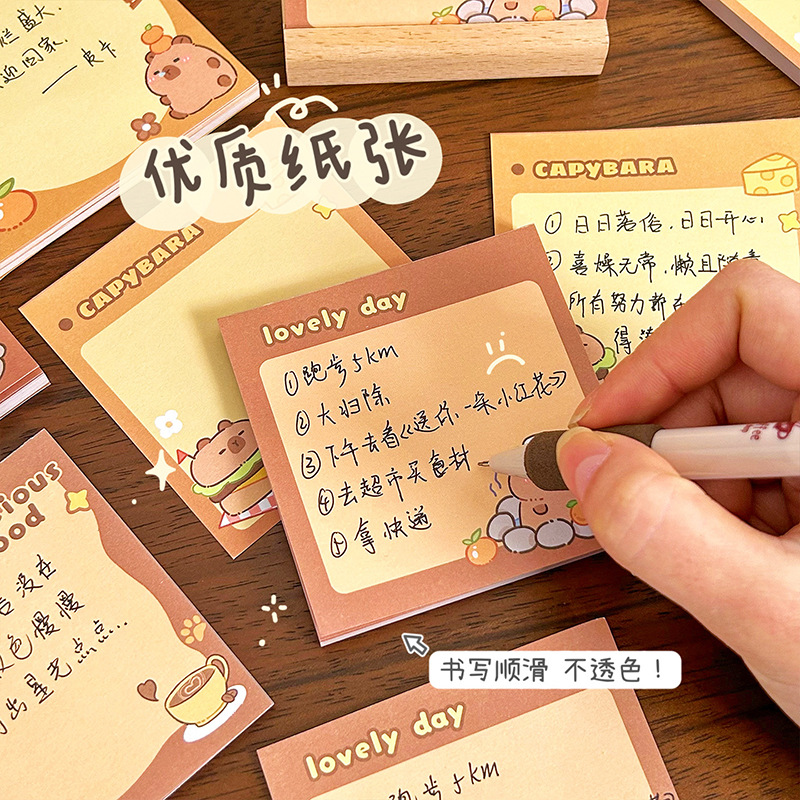 烂盛大,
迎回家.
—— 皮卡
优质纸张
CAPYBARA
① 日日落俗,日日开心.
喜燥无常,懒且随意
所有努力都在
得
CAPYBARA
lovely day
① 跑步5km
② 大扫除
③ 下午去看《送你一朵小红花》
④ 去超市买食材
⑤ 拿快递
ood
没在
色慢慢
出星光点点...
书写顺滑 不透色!
lovely day
跑步5km